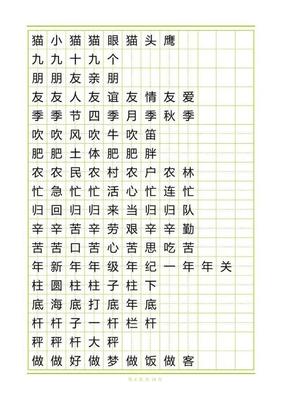 猫小猫猫眼猫头鹰
九九十九个
朋朋友亲朋
友友人友谊友情友爱
季季节四季月季秋季
吹吹风吹牛吹笛
肥肥土体肥肥胖
农农民农村农户农林
忙忙急忙忙活忙心忙连忙
归归回归归来当归归队
辛辛苦辛劳艰辛辛勤
苦苦口苦心苦思吃苦
年新年年级年纪一年年关
柱圆柱柱子柱下
底海底打底年底
杆杆子一杆栏杆
秤秤杆大秤
做做好做梦做饭做客